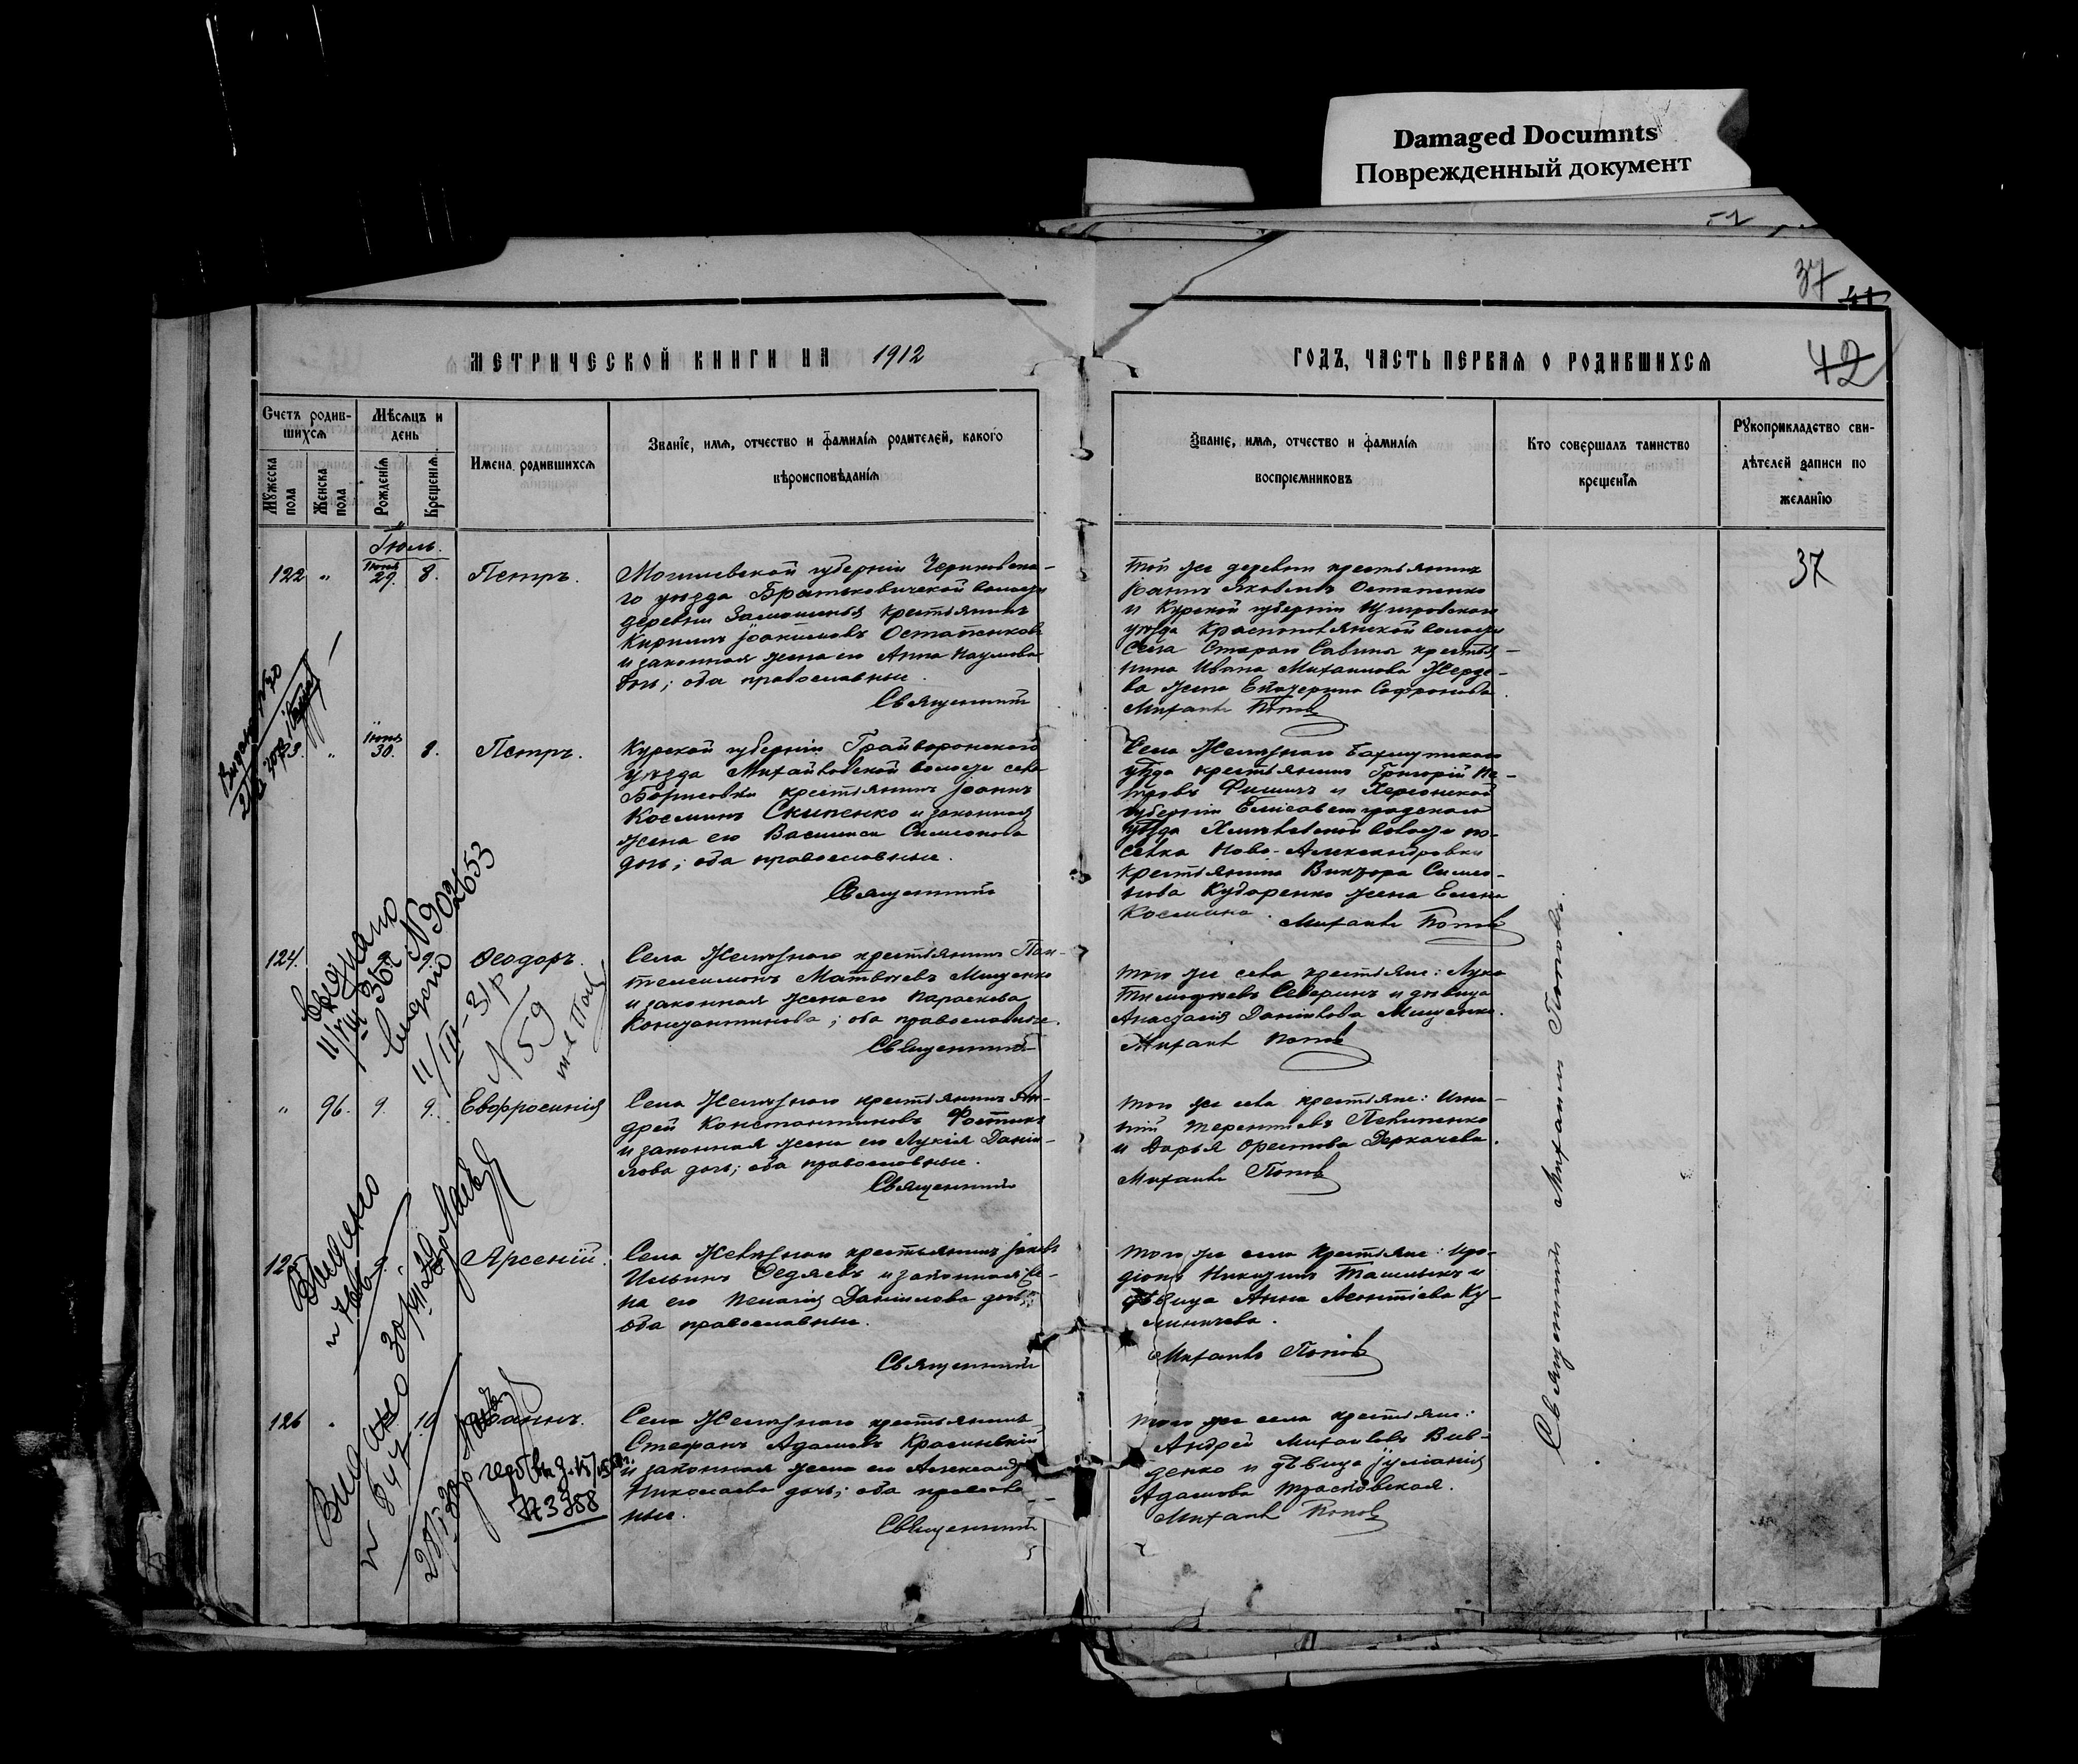 Damaged Documnts
Поврежденный документ
37
41
42
МЕТРИЧЕСКОЙ КНИГИ НА 1912
ГОДЪ, ЧАСТЬ ПЕРВАЯ О РОДИВШИХСЯ
Счетъ родив-
шихся
Мужеска пола
Женска пола
Мѣсяцъ и
день
Рожденія
Крещенія
Имена родившихся
Званіе, имя, отчество и фамилія родителей, какого
вѣроисповѣданія
Званіе, имя, отчество и фамилія
воспріемниковъ
Кто совершалъ таинство
крещенія
Рукоприкладство сви-
дѣтелей записи по
желанію
Іюль.
122 " Іюня 29. 8. Петръ.
Могилевской губерніи Чериковска-
го уѣзда Братьковичской волости
деревни Замошенья крестьянинъ
Кириллъ Іоакимовъ Остапенковъ
и законная жена его Анна Наумова
дочь; оба православные.
Священникъ
Той же деревни крестьянинъ
Іоаннъ Яковлевъ Остапенко
и Курской губерніи Щигровскаго
уѣзда Краснополянской волости
села Стараго Савина крестья-
нина Ивана Михаилова Жерде-
ва жена Екатерина Софронова.
Михаилъ Поповъ
37
" Іюня 30. 8. Петръ.
Курской губерніи Грайворонскаго
уѣзда Михайловской волости села
Борисовки крестьянинъ Іоаннъ
Косминъ Скипенко и законная
жена его Василиса Симеонова
дочь; оба православные.
Священникъ
Села Желѣзнаго Бахмутскаго
уѣзда крестьянинъ Григорій Пе-
тровъ и Херсонской
губерніи Елисаветградскаго
уѣзда волости по-
селка Ново-Александровки
крестьянина Виктора Симео-
нова Кударенко жена Елена
Космина. Михаилъ Поповъ
124. 9. Ѳеодоръ.
Села Желѣзнаго крестьянинъ Пан-
телеимонъ Матвѣевъ Мищенко
и законная жена его Параскева
Константинова; оба православные.
Священникъ
Того же села крестьяне: Лука
Тимоѳеевъ Северинъ и дѣвица
Анастасія Даніилова Мищенко.
Михаилъ Поповъ
" 96. 9. 9. Евфросинія
Села Желѣзнаго крестьянинъ Ан-
дрей Константиновъ
и законная жена его Лукія Даніи-
лова дочь; оба православные.
Священникъ
Того же села крестьяне: Игна-
тій Терентіевъ
и Дарья Орестова Деркачева.
Михаилъ Поповъ
125 Арсеній.
Села Желѣзнаго крестьянинъ Іаковъ
Ильинъ Ѳедяевъ и законная же-
на его Пелагія Даніилова дочь;
оба православные.
Священникъ
Того же села крестьяне: Иро-
діонъ Никитинъ Ташлыкъ и
дѣвица Анна Леонтіева Ку-
линичева.
Михаилъ Поповъ
126 " 10 Іоаннъ.
Села Желѣзнаго крестьянинъ
Стефанъ Адамовъ
и законная жена его Александра
Николаева дочь; оба православ
ные.
Священникъ
Того же села крестьяне:
Андрей Михаиловъ Вив-
денко и дѣвица Іуліанія
Адамова
Михаилъ Поповъ
Священникъ Михаилъ Поповъ.
Выдано
N 902653
11/III-31р
N 59
Выдано
№ 766
Выдано
№ 847
№ 3788